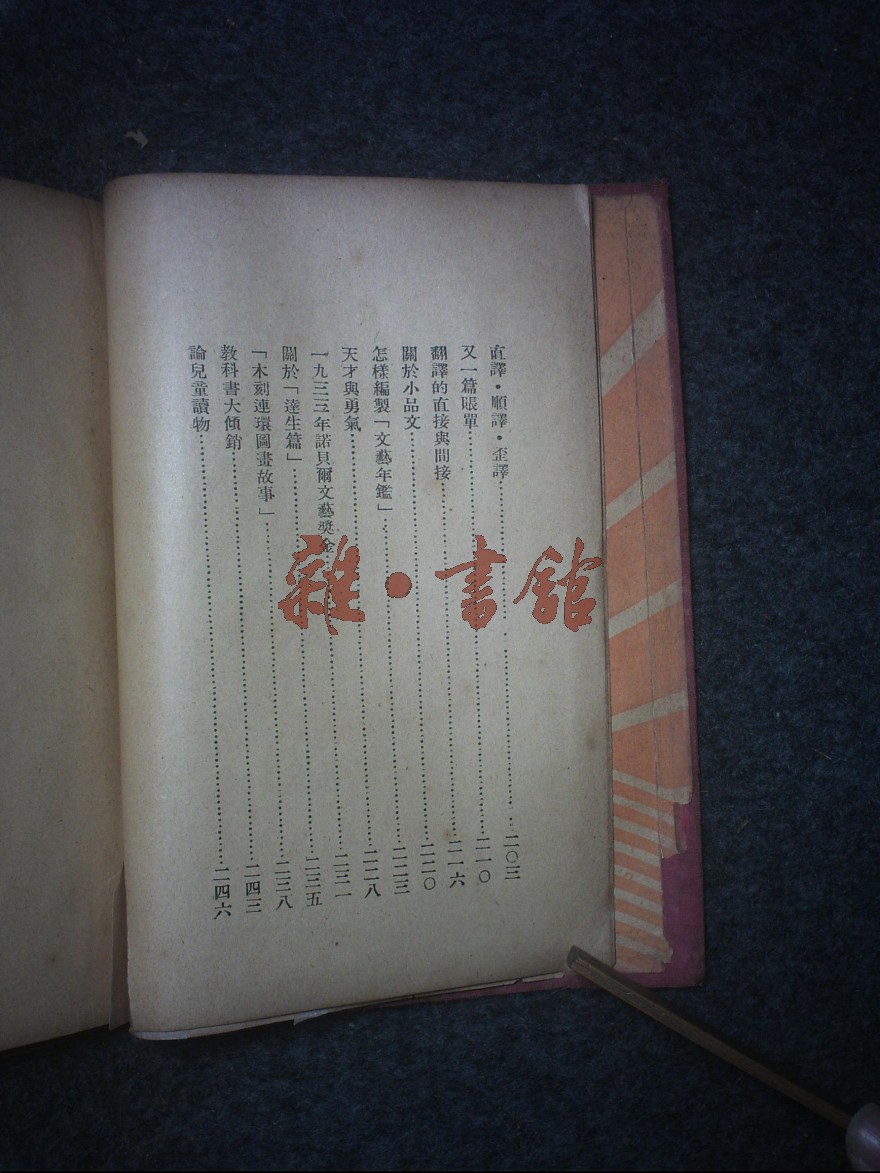 直譯·順譯·歪譯……二〇三
又一篇賬單……二一〇
翻譯的直接與間接……二一六
關於小品文……二二〇
怎樣編製「文藝年鑑」……二二三
天才與勇氣……二二八
一九三三年諾貝爾文藝獎金……二三一
關於「達生篇」……二三五
「木刻連環圖畫故事」……二三八
教科書大傾銷……二四三
論兒童讀物……二四六
雜·書館